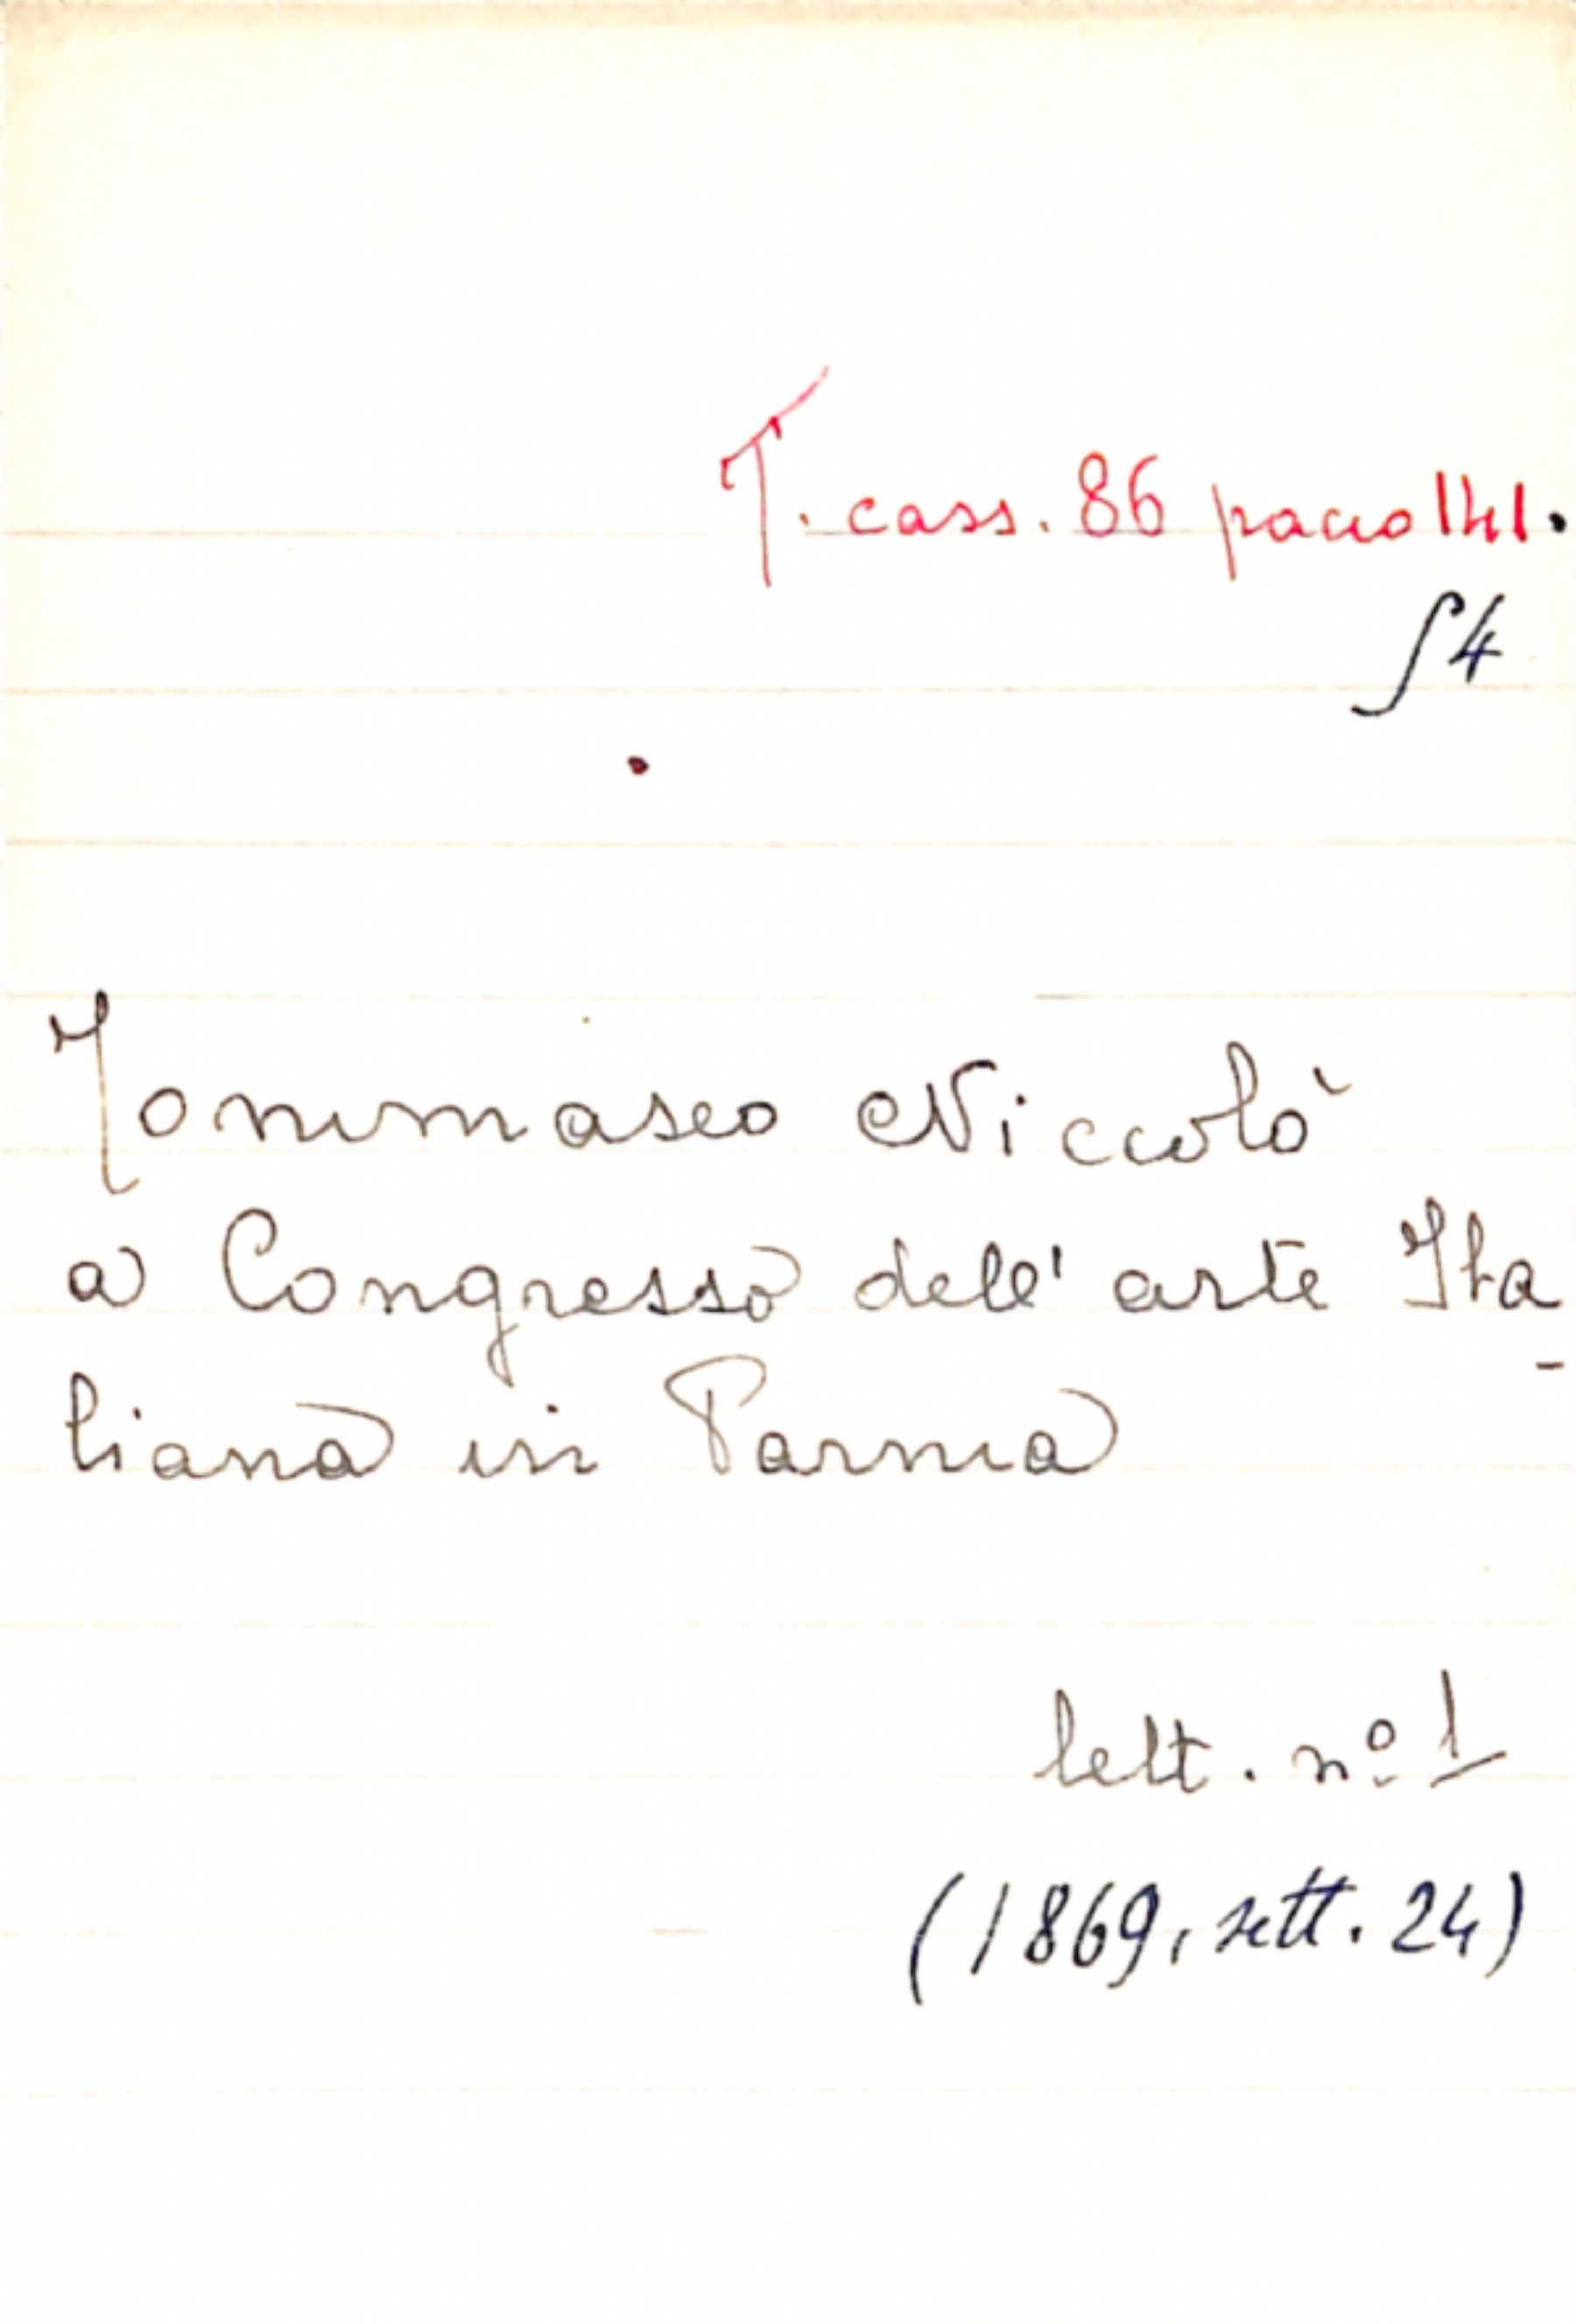 T. cass. 86 pacco 141.
∫ 4
Tommaseo Niccolò
a Congresso dell' arte Ita
-
liana in Parma
lett. nº 1
(1869, sett. 24)